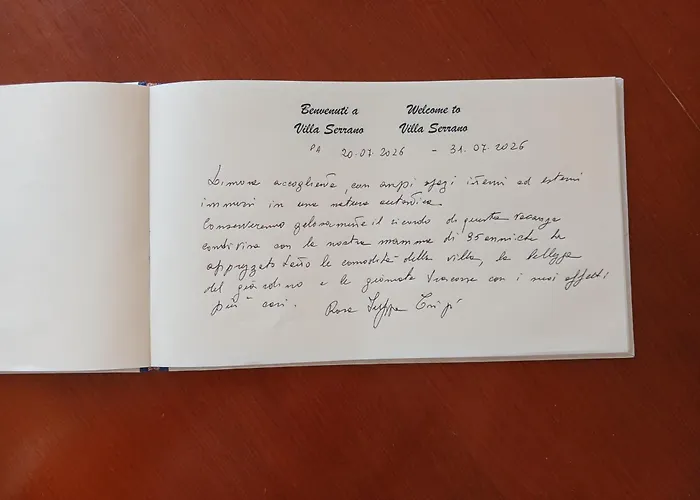 Benvenuti a Welcome to
Villa Serrano Villa Serrano
PA 20.07.2026 - 31.07.2026
Dimora accogliente, con ampi spazi interni ed esterni
immersi in una natura autentica
Conserveremo gelosamente il ricordo di questa vacanza
condivisa con la nostra mamma di 95 anni che ha
apprezzato tanto le comodità della villa, la bellezza
del giardino e le giornate trascorse con i suoi affetti
più cari. Rosa